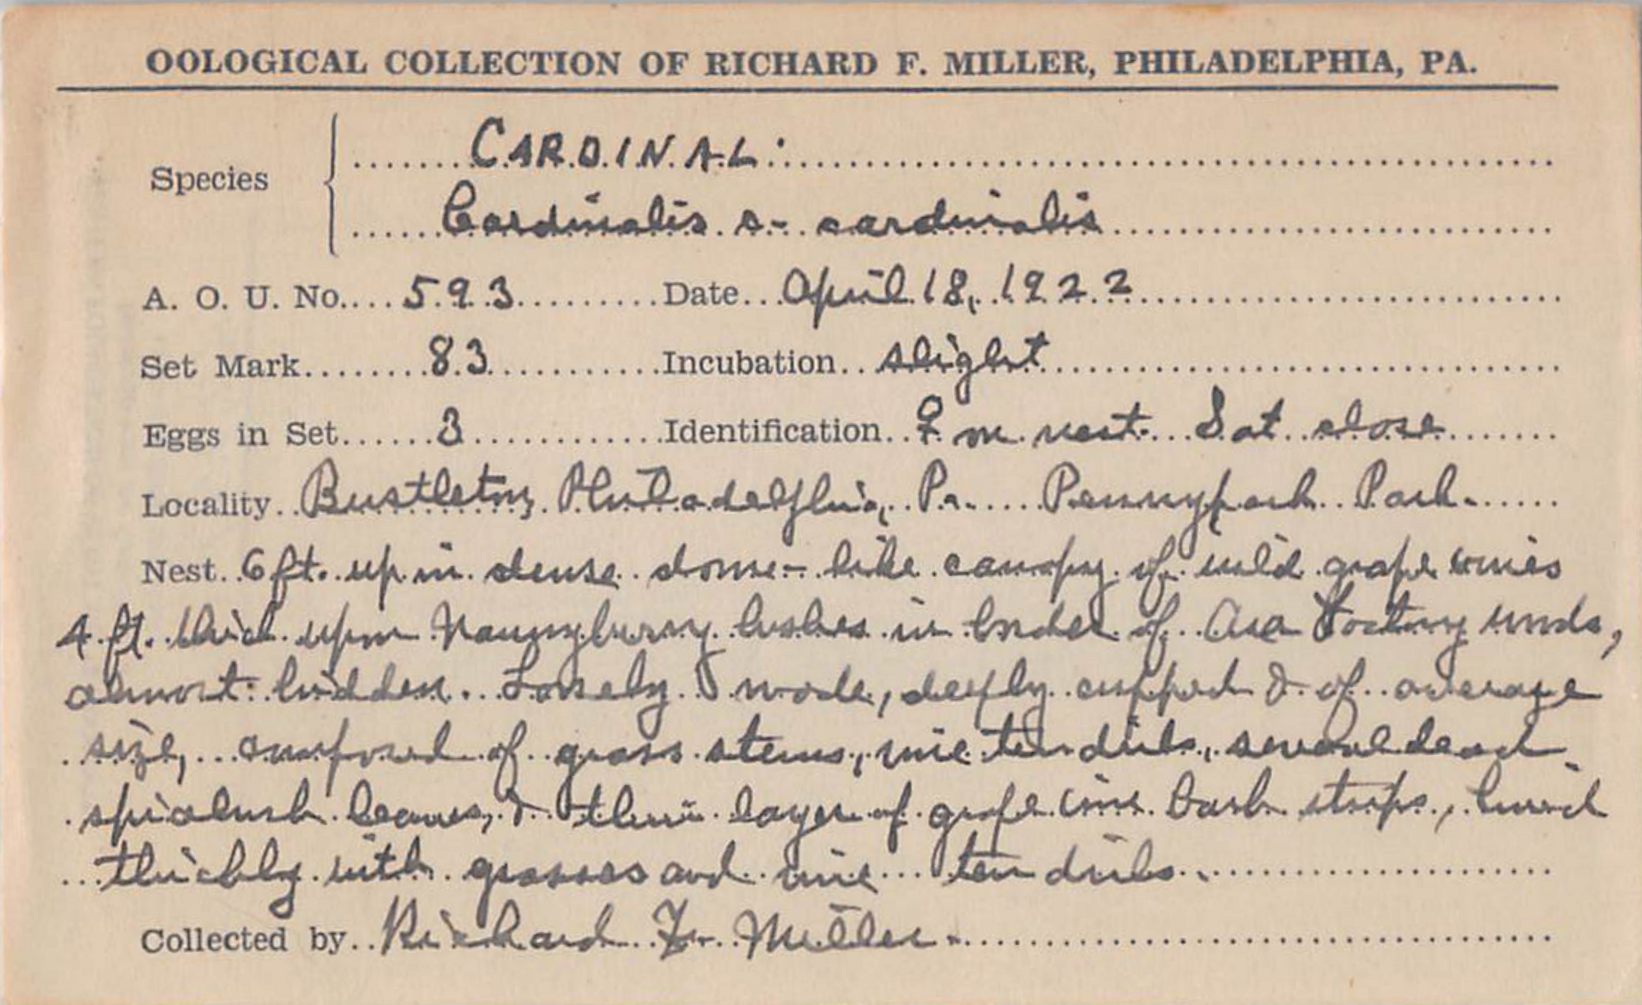 OOLOGICAL COLLECTION OF RICHARD F. MILLER, PHILADELPHIA, PA.
Species CARDINAL:
Cardinalis c- cardinalis
A. O. U. No. 593 Date April 18, 1922
Set Mark 83 Incubation slight
Eggs in Set 3 Identification ♀ on nest. Sat close
Locality Bustleton, Philadelphia, Pa. Pennypack Park.
Nest 6 ft. up in dense dome-like canopy of wild grape vines
4 ft. thick upon Nannyberry bushes in border of Factory woods,
almost hidden. Loosely made, deeply cupped & of average
size, composed of grass stems, vine tendrils, several dead
leaves, & thin layer of grape vine bark strips, lined
thickly with grasses and vine tendrils.
Collected by Richard F. Miller.